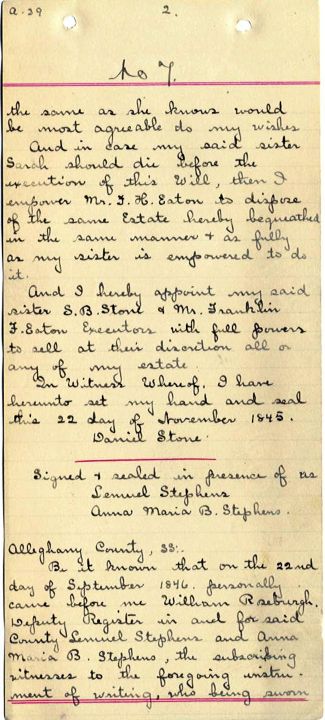 a-39
2.
No 7.
the same as she knows would
be most agreeable do my wishes
And in case my said sister
Sarah should die before the
execution of this Will, then I
empower Mr. F. H. Eaton to dispose
of the same Estate hereby bequeathed
in the same manner & as fully
as my sister is empowered to do
it.
And I hereby appoint my said
sister S. B. Stone & Mr. Franklin
F. Eaton Executors with full powers
to sell at their discretion all or
any of my estate.
In Witness Whereof, I have
hereunto set my hand and seal
this 22 day of November 1845.
Daniel Stone.
Signed & sealed in presence of us
Lemuel Stephens
Anna Maria B. Stephens.
Alleghany County, SS:.
Be it known that on the 22nd
day of September 1846. personally
came before me William Roseburgh.
Deputy Register in and for said
County Lemuel Stephens and Anna
Maria B. Stephens, the subscribing
witnesses to the foregoing instru-
ment of writing, who being sworn